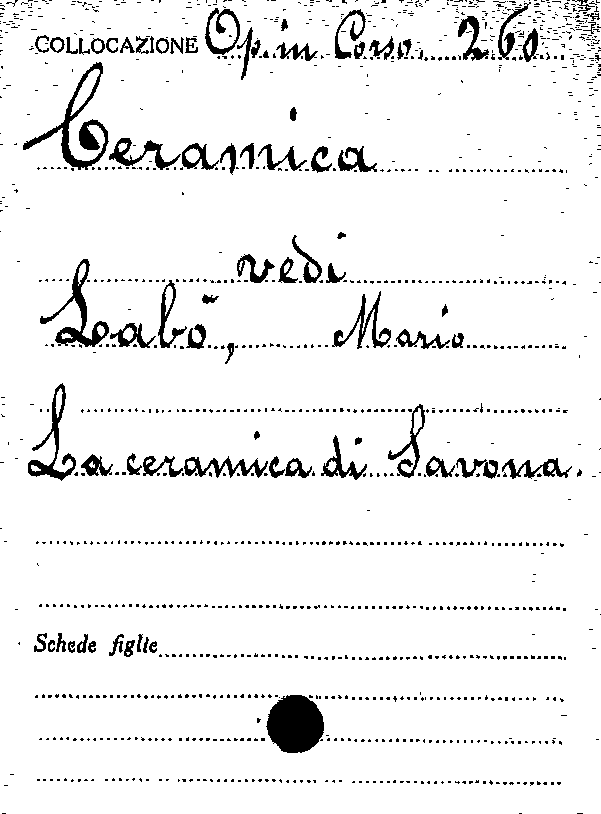 COLLOCAZIONE Op. in Corso. 260
Ceramica
vedi
Labò, Mario
La ceramica di Savona.
Schede figlie